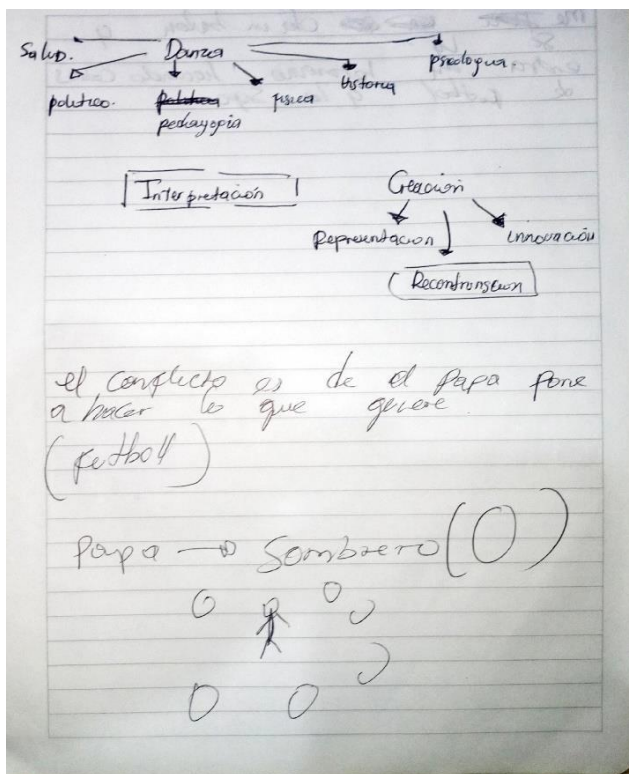 Salud. Danza psicologia
politico. Politica fisica historia
pedagogia
Interpretación Creación
Representación innovación
Recontrunsción
el conflicto es de el Papa pone
a hacer lo que quiere
(Futboll)
Papa → Sombrero (O)